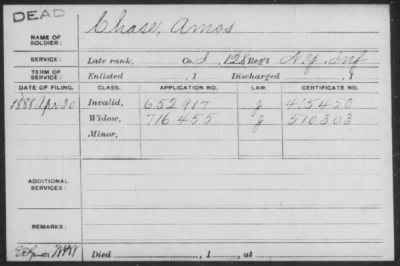 DEAD
NAME OF SOLDIER: Chase, Amos
SERVICE: Late rank, Co. I, 128 Reg't N.Y. Inf
TERM OF SERVICE: Enlisted , 1 Discharged , 1
DATE OF FILING. CLASS. APPLICATION NO. LAW. CERTIFICATE NO.
1888 Apr 30 Invalid, 652 917 g 415420
Widow, 716 455 g 510303
Minor,
ADDITIONAL SERVICES:
REMARKS:
Died , 1 , at